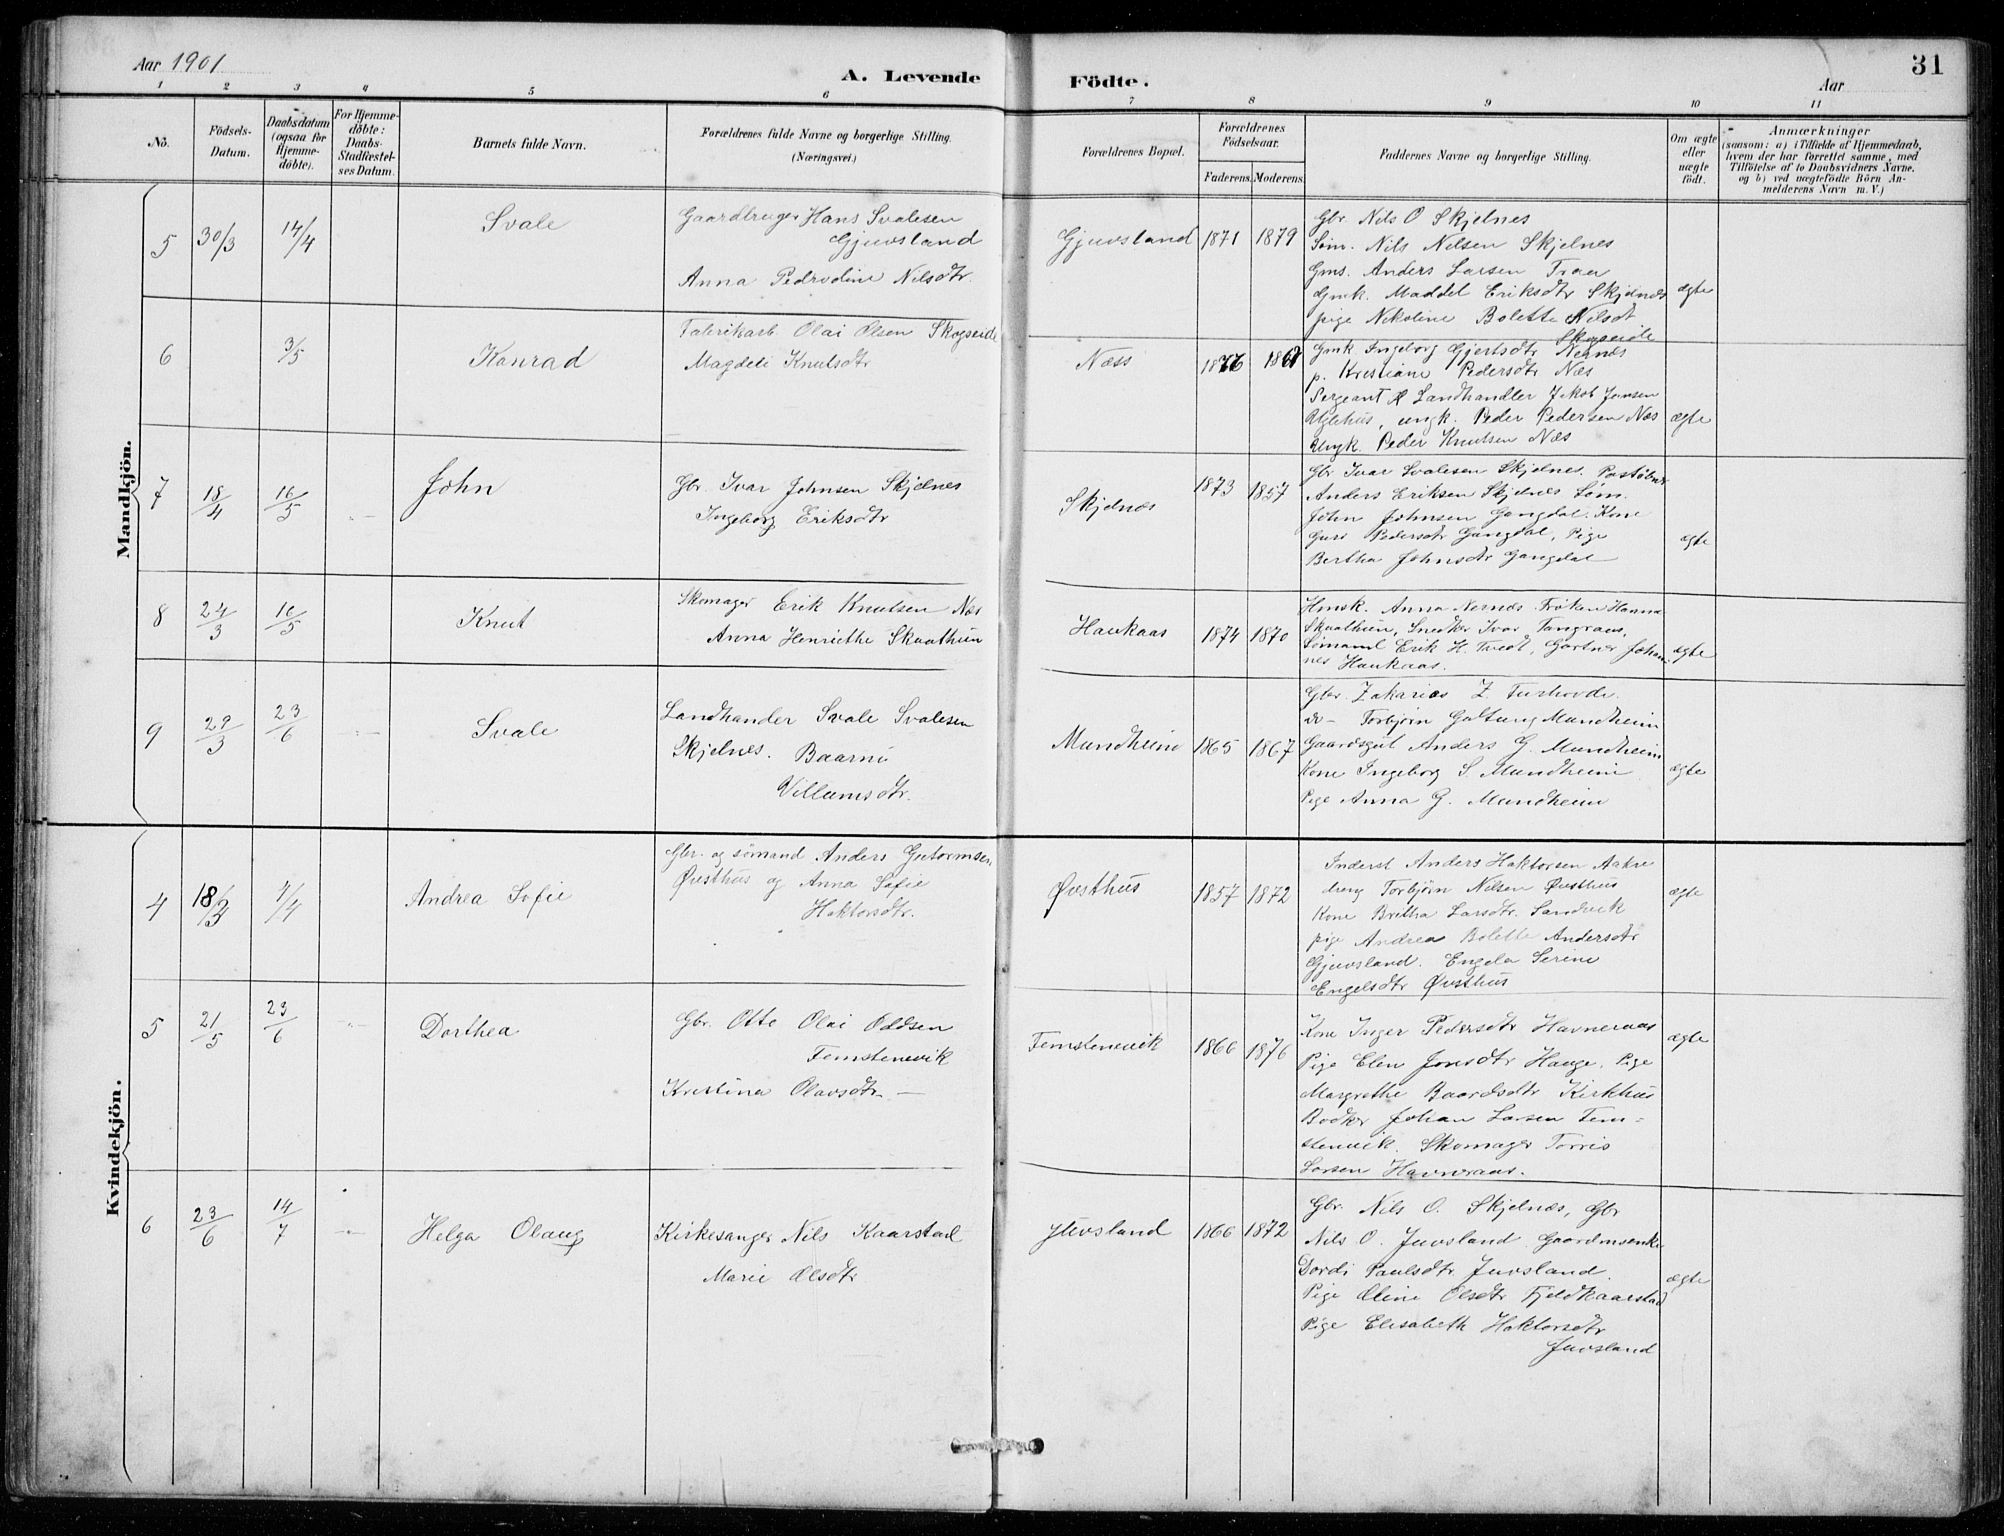 Aar 1901
A. Levende Födte.
Aar
31
1 2 3 4 5 6 7 8 9 10 11
No.
Födsels-Datum.
Daabsdatum (ogsaa for Hjemme-döbte).
For Hjemme-döbte: Daabs-Stadfæstel-ses Datum.
Barnets fulde Navn.
Forældrenes fulde Navne og borgerlige Stilling.
(Næringsvei.)
Forældrenes Bopæl.
Forældrenes Födselsaar.
Faderens. Moderens.
Faddernes Navne og borgerlige Stilling.
Om ægte eller uægte födt.
Anmærkninger
(saasom: a) i Tilfælde af Hjemmedaab,
hvem der har forrettet samme, med
Tilföielse af to Daabsvidners Navne,
og b) ved uægtefödte Börn An-
melderens Navn m. V.)
Mandkjön.
5 30/3 14/4 Svale
Gaardbruger Hans Svalesen
Gjuvsland
Anna Pedrodine Nilsdtr.
Gjuvsland 1871 1879
Gbr. Nils O Skjelnes
Söm. Nils Nelsen Skjelnes
Gms. Anders Larsen Traa
Gmk. Maddel Eriksdtr Skjelnæs
pige Nikoline Bolette Nilsdt
Skogseide
ægte
6 3/5 Konrad
Fabrikarb. Olai Olsen Skogseide
Magdeli Knutsdtr
Næss 1876
Gmk Ingeborg Gjertsdtr Nernæs
p. Kristiane Pedersdtr Næs
Sergeant & Landhandler Jakob Jensen
ungk. Peder Pedersen Næs
Ungk. Peder Knutsen Næs
ægte
7 18/4 16/5 John
Gbr. Ivar Johnsen Skjelnes
Ingeborg Eriksdtr
Skjelnæs 1873 1857
Gbr Ivar Svalesen Skjelnes. Postöbner
Anders Eriksen Skjelnes Söm.
John Johnsen Gangdal. Kone
Guro Pedersdtr Gangdal, Pige
Bertha Johnsdtr Gangdal
ægte
8 24/3 16/5 Knut
Skomager Erik Knutsen Næs
Anna Henriethe Skaathun
Haukaas 1874 1870
Hmsk. Anna Nernæs. Fröken Hanna
Skaathun, Snedker Ivar Tangraas,
Sömand Erik H. Tvedt, Gartner Johan-
nes Haukaas.
ægte
9 29/3 23/6 Svale
Landhander Svale Svalesen
Skjelnes. Baarni
Villumsdtr.
Mundheim 1865 1867
Gbr. Zakarias Z. Tushovde.
do- Torbjörn Galtung Mundheim
Gaardsgut Anders G. Mundheim
Kone Ingeborg S. Mundheim
Pige Anna G. Mundheim
ægte
Kvindekjön.
4 7/4 Andrea Sofie
Gbr. og sömand Anders Gutormsen
Øvsthus og Anna Sofie
Haktorsdtr.
Øvsthus 1857 1872
Inderst Anders Haktorsen Aakre
dreng Torbjörn Nilsen Øvsthus
Kone Britha Larsdtr. Sandvik
pige Andrea Bolette Andersdtr
Gjuvsland. Engela Serine
Engelsdtr Øvsthus
ægte
5 21/5 23/6 Dorthea
Gbr. Otto Olai Oddsen
Femstenevik
Kristina Olavsdtr —
Femstenevik 1866 1876
Kone Inger Pedersdtr Havneraas
Pige Elen Jonsdtr Hauge. Pige
Margrethe Baardsdtr Kirkhus
Bödker Johan Larsen Fem=
stenevik. Skomager Torris
Larsen Havneraas.
ægte
6 23/6 14/7 Helga Olaug
Kirkesanger Nils Kaarstad
Marie Olsdtr
Juvsland 1866 1872
Gbr. Nils O. Skjelnæs, Gbr
Nils O. Juvsland. Gaardmsenke
Dordi Paulsdtr Juvsland.
Pige Oline Olsdtr Fjeldkaarstad
Pige Elisabeth Haktorsdtr
Juvsland
ægte